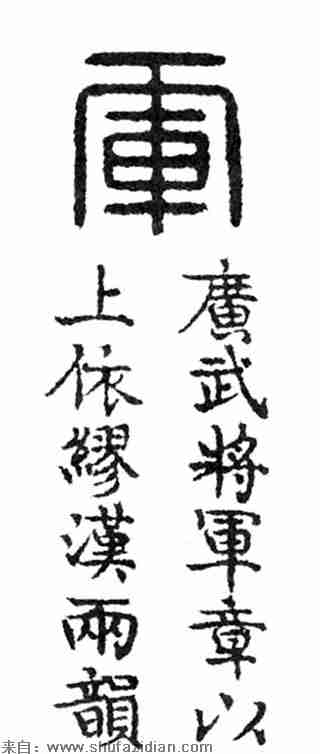 軍
廣武將軍章以
上依繆漢兩韻
来自：www.shufazidian.com